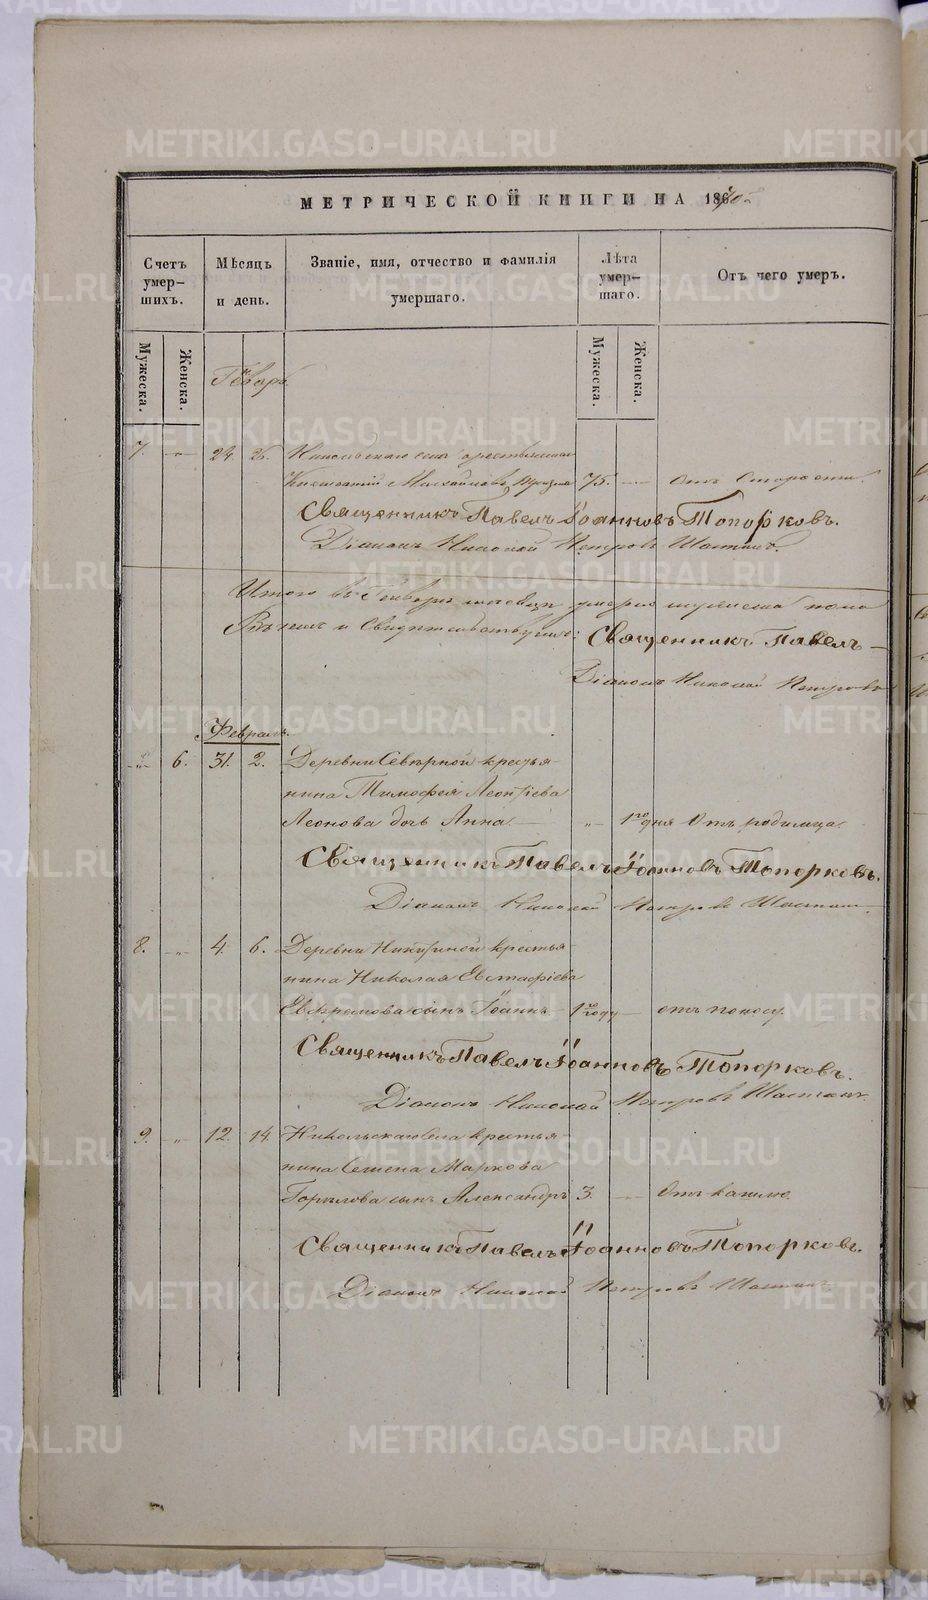 МЕТРИЧЕСКОЙ КНИГИ НА 1870
Счетъ умер-шихъ.
Мѣсяцъ и день.
Званіе, имя, отчество и фамилія умершаго.
Лѣта умер-шаго.
Отъ чего умеръ.
Мужеска.
Женска.
Мужеска.
Женска.
Генварь
7. -„- 24. 26. Никольскаго села
Михайловъ 75. — отъ старости.
Священникъ Павелъ Іоанновъ Топорковъ.
Діаконъ Николай Петровъ
Итого въ Генварѣ мѣсяцѣ умерло мужеска пола
Священникъ Павелъ —
Діаконъ Николай Петровъ
Февраль.
-„- 6. 31. 2. Деревни Сѣверной крестья-
нина Тимофея Леонтіева
Леонова дочь Анна — „ 1го дня Отъ родимца
Священникъ Павелъ Іоанновъ Топорковъ.
Діаконъ Николай Петровъ
8. -„- 4. 6. Деревни Никитиной крестья-
нина Николая Евстафіева
Ефремова сынъ Іоаннъ 1 году — отъ поносу
Священникъ Павелъ Іоанновъ Топорковъ.
Діаконъ Николай Петровъ
9. „ 12. 14. Никольскаго села крестья-
нина Семена Маркова
Горѣлова сынъ Александръ 3. — Отъ кашлю.
Священникъ Павелъ Іоанновъ Топорковъ.
Діаконъ Николай Петровъ
METRIKI.GASO-URAL.RU